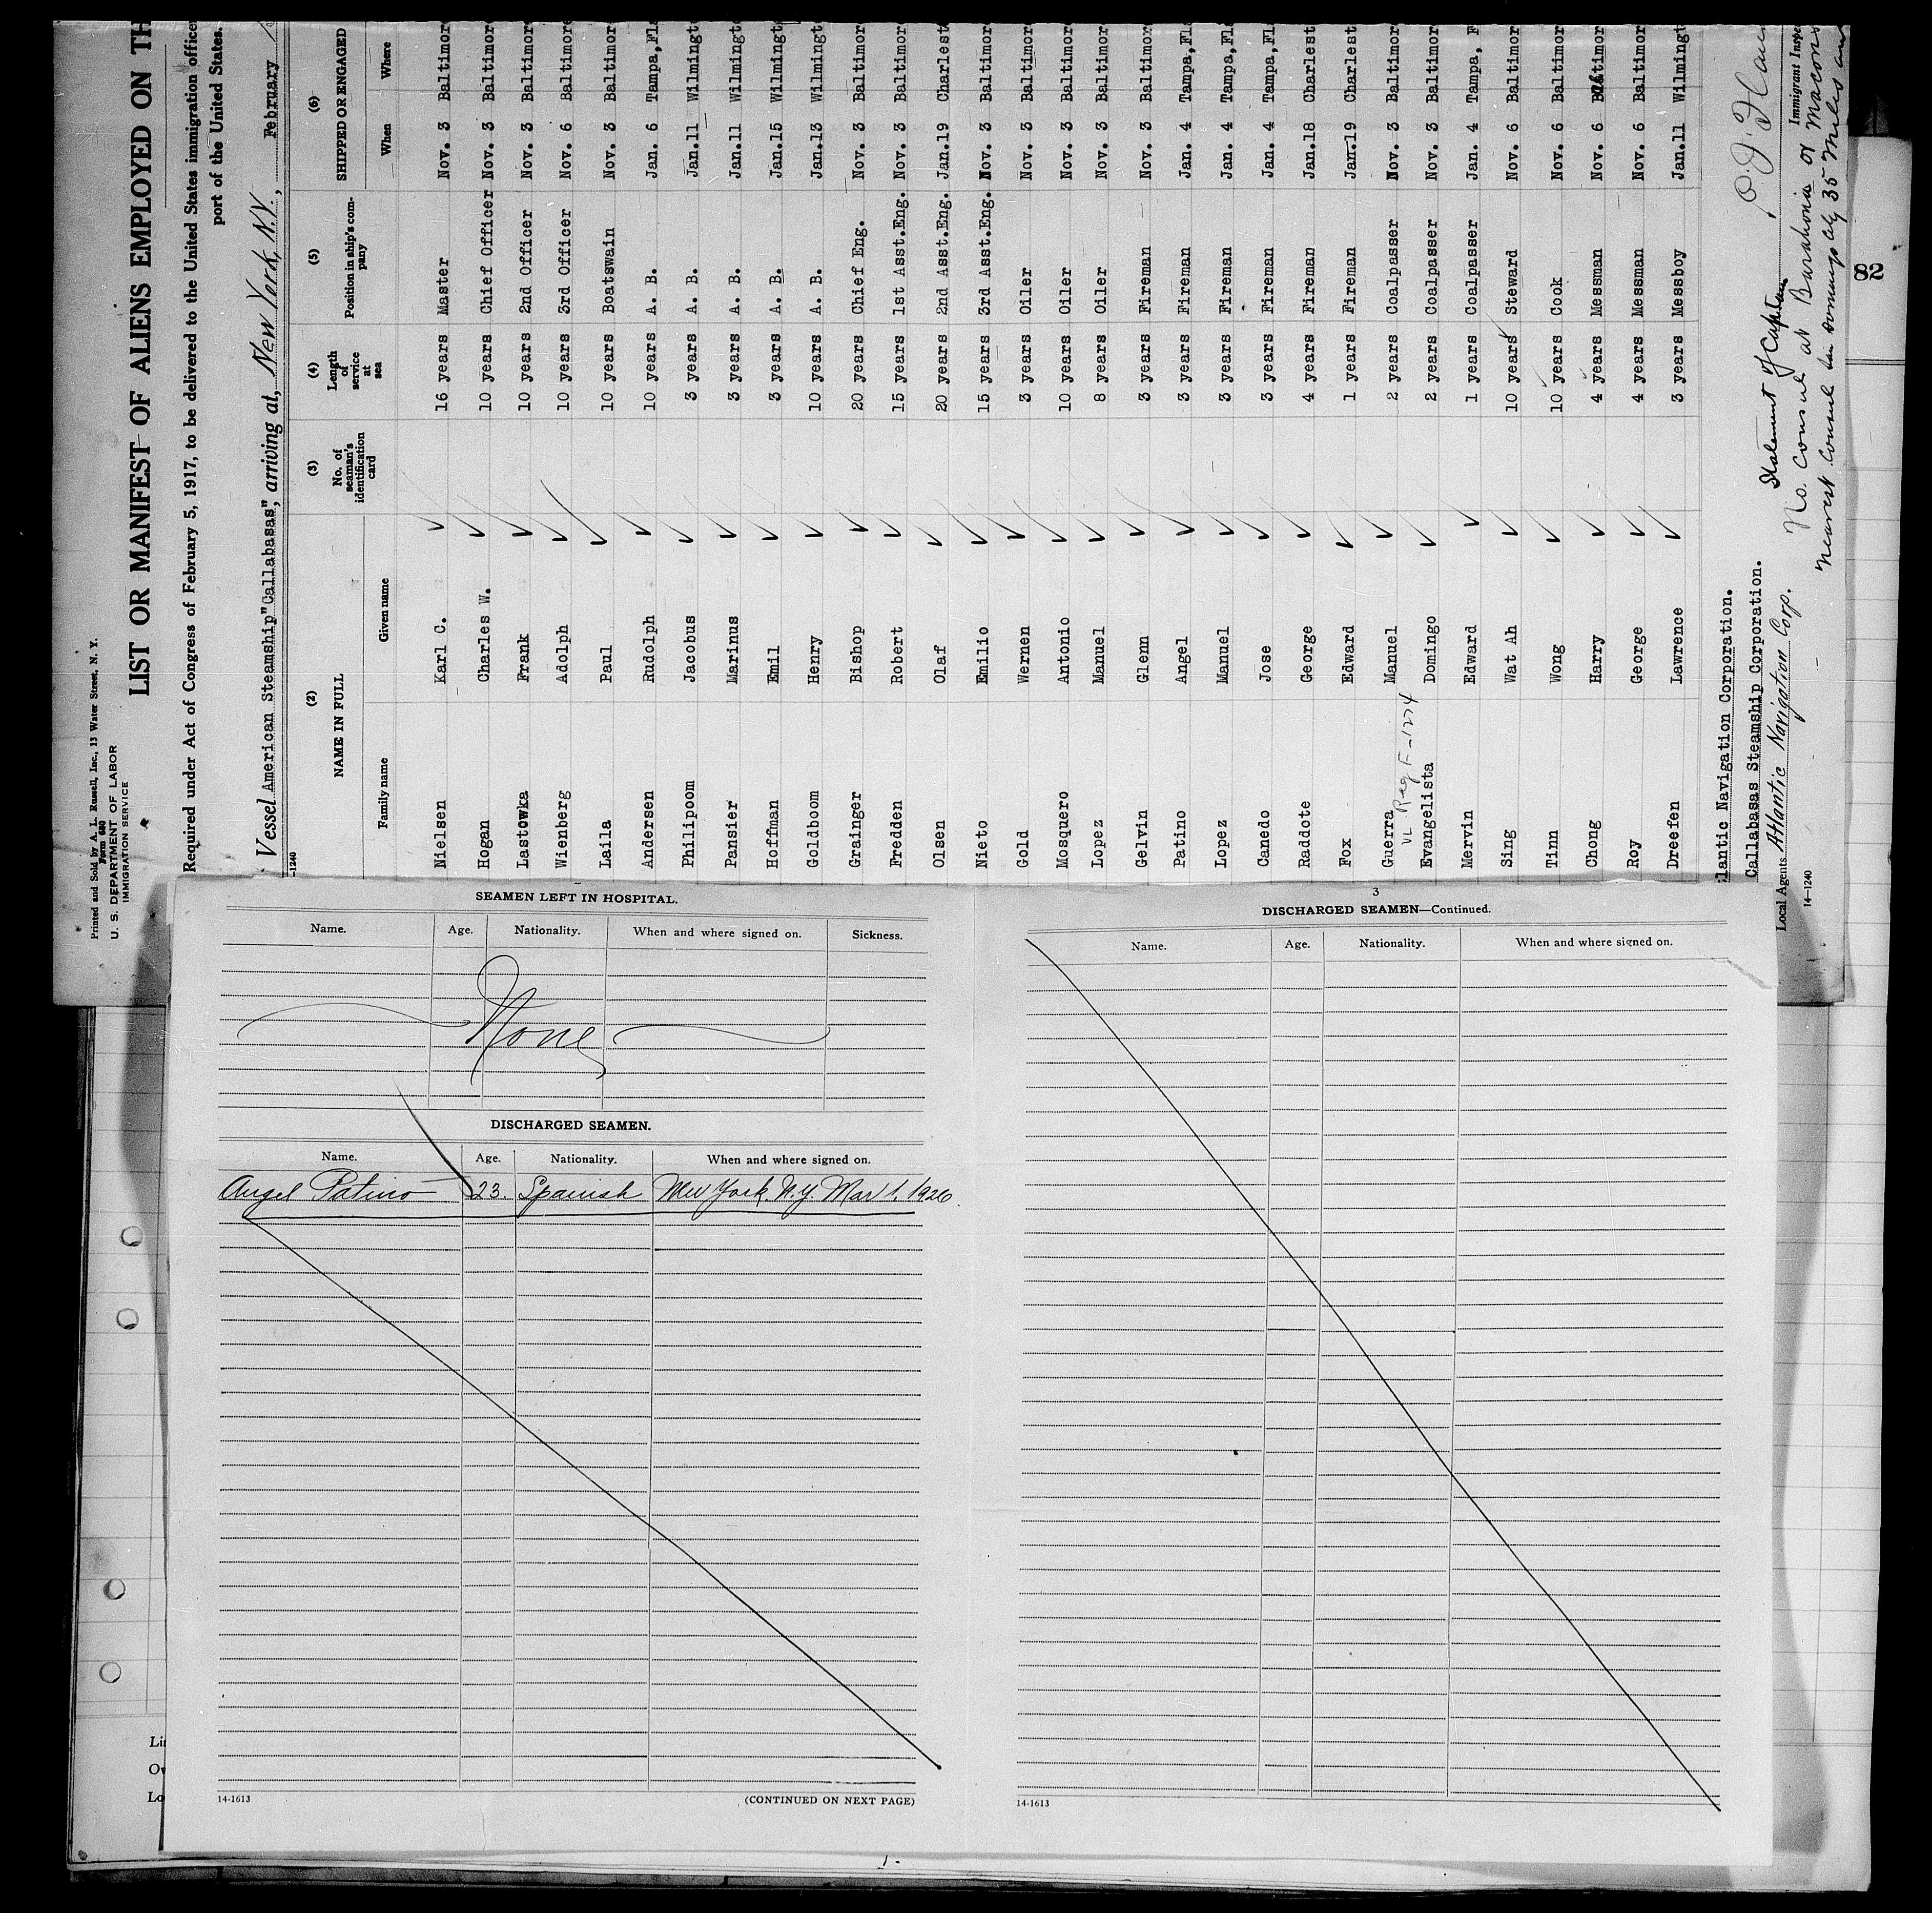 Printed and Sold by A. L. Russell, Inc., 13 Water Street, N. Y.
Form 680
U. S. DEPARTMENT OF LABOR
IMMIGRATION SERVICE
LIST OR MANIFEST OF ALIENS EMPLOYED ON TH
Required under Act of Congress of February 5, 1917, to be delivered to the United States immigration officer
port of the United States.
Vessel American Steamship"Callabasas", arriving at, New York, N.Y., February
-1240
(2) (3) (4) (5) (6)
NAME IN FULL No. of seaman's identification card Length of service at sea Position in ship's company SHIPPED OR ENGAGED
Family name Given name When Where
Nielsen Karl C. 16 years Master Nov. 3 Baltimor
Hogan Charles W. 10 years Chief Officer Nov. 3 Baltimor
Lastowka Frank 10 years 2nd Officer Nov. 3 Baltimor
Wienberg Adolph 10 years 3rd Officer Nov. 6 Baltimore
Laila Paul 10 years Boatswain Nov. 3 Baltimor
Andersen Rudolph 10 years A. B. Jan. 6 Tampa,Fla
Philipoom Jacobus 3 years A. B. Jan.11 Wilmingt
Pansier Marinus 3 years A. B. Jan.11 Wilmingt
Hoffman Emil 3 years A. B. Jan.15 Wilmingt
Goldboom Henry 10 years A. B. Jan.13 Wilmingt
Grainger Bishop 20 years Chief Eng. Nov. 3 Baltimor
Fredden Robert 15 years 1st Asst.Eng. Nov. 3 Baltimor
Olsen Olaf 20 years 2nd Asst.Eng. Jan.19 Charlest
Nieto Emilio 15 years 3rd Asst.Eng. Nov. 3 Baltimor
Gold Wernen 3 years Oiler Nov. 3 Baltimor
Mosquero Antonio 10 years Oiler Nov. 3 Baltimor
Lopez Manuel 8 years Oiler Nov. 3 Baltimor
Gelvin Glenn 3 years Fireman Nov. 3 Baltimor
Patino Angel 3 years Fireman Jan. 4 Tampa,Fl
Lopez Manuel 3 years Fireman Jan. 4 Tampa,Fl
Canedo Jose 3 years Fireman Jan. 4 Tampa,Fl
Raddote George 4 years Fireman Jan.18 Charlest
Fox Edward 1 years Fireman Jan.19 Charlest
Guerra Manuel 2 years Coalpasser Nov. 3 Baltimor
VL Reg F-1224
Evangelista Domingo 2 years Coalpasser Nov. 3 Baltimor
Mervin Edward 1 years Coalpasser Jan. 4 Tampa, F
Sing Wat Ah 10 years Steward Nov. 6 Baltimor
Tinn Wong 10 years Cook Nov. 6 Baltimor
Chong Harry 4 years Messman Nov. 6 Baltimor
Roy George 4 years Messman Nov. 6 Baltimor
Dreefen Lawrence 3 years Messboy Jan.11 Wilmingt
lantic Navigation Corporation.
Callabasas Steamship Corporation.
Local Agents Atlantic Navigation Corp.
14-1240
Immigrant Inspe
Statement of Captain
No Consul at Barahona or Macoris
nearest Consul San Domingo City 35 Miles
82
SEAMEN LEFT IN HOSPITAL.
Name. Age. Nationality. When and where signed on. Sickness.
None
DISCHARGED SEAMEN.
Name. Age. Nationality. When and where signed on.
Angel Patino 23. Spanish New York. N.Y. Mar 1, 1920
14-1613
(CONTINUED ON NEXT PAGE)
3
DISCHARGED SEAMEN—Continued.
Name. Age. Nationality. When and where signed on.
14-1613
Li
Ow
Lo